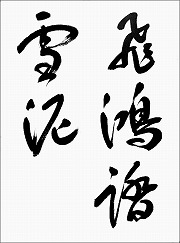 飛鴻踏
雪泥